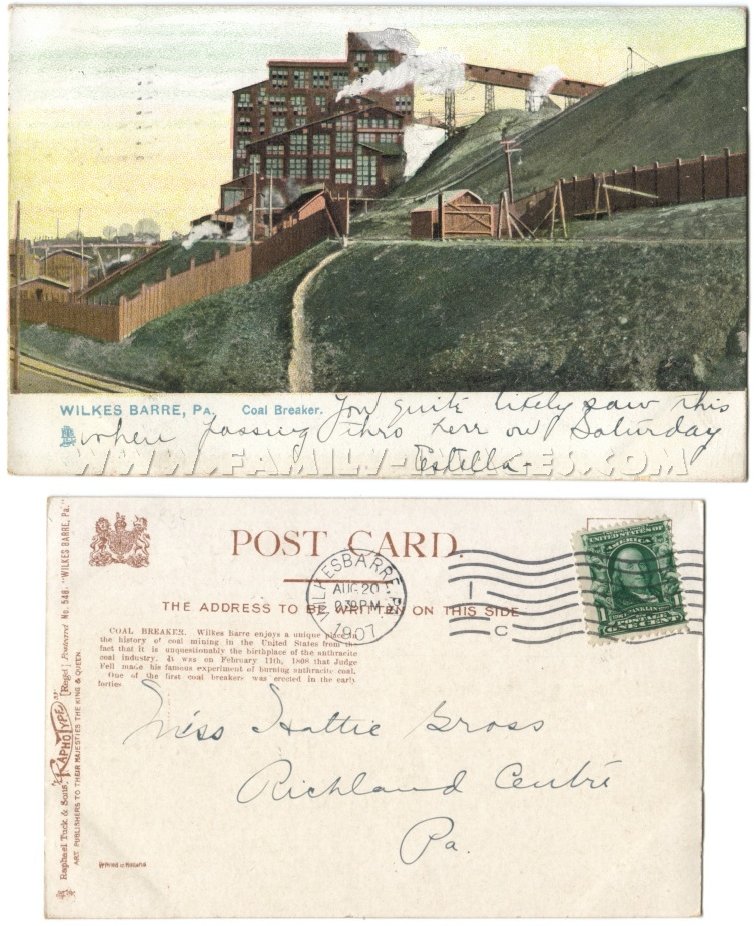 WILKES BARRE, PA. Coal Breaker. You quite likely saw this
when passing thro herr on Saturday
Estella-
WWW.FAMILY-IMAGES.COM
POST CARD.
THE ADDRESS TO BE WRITTEN ON THIS SIDE
WILKESBARRE, PA.
AUG 20
9 30 PM
1907
1
C
UNITED STATES OF
AMERICA
FRANKLIN
POSTAGE
ONE CENT
COAL BREAKER. Wilkes Barre enjoys a unique place in
the history of coal mining in the United States from the
fact that it is unquestionably the birthplace of the anthracite
coal industry. It was on February 11th, 1808 that Judge
Fell made his famous experiment of burning anthracite coal.
One of the first coal breakers was erected in the early
forties
Miss Hattie Gross
Richland Centre
Pa.
Raphael Tuck & Sons' "RAPHOTYPE" [Regd] Postcard No. 548. "WILKES BARRE, Pa."
ART PUBLISHERS TO THEIR MAJESTIES THE KING & QUEEN.
Printed in Holland